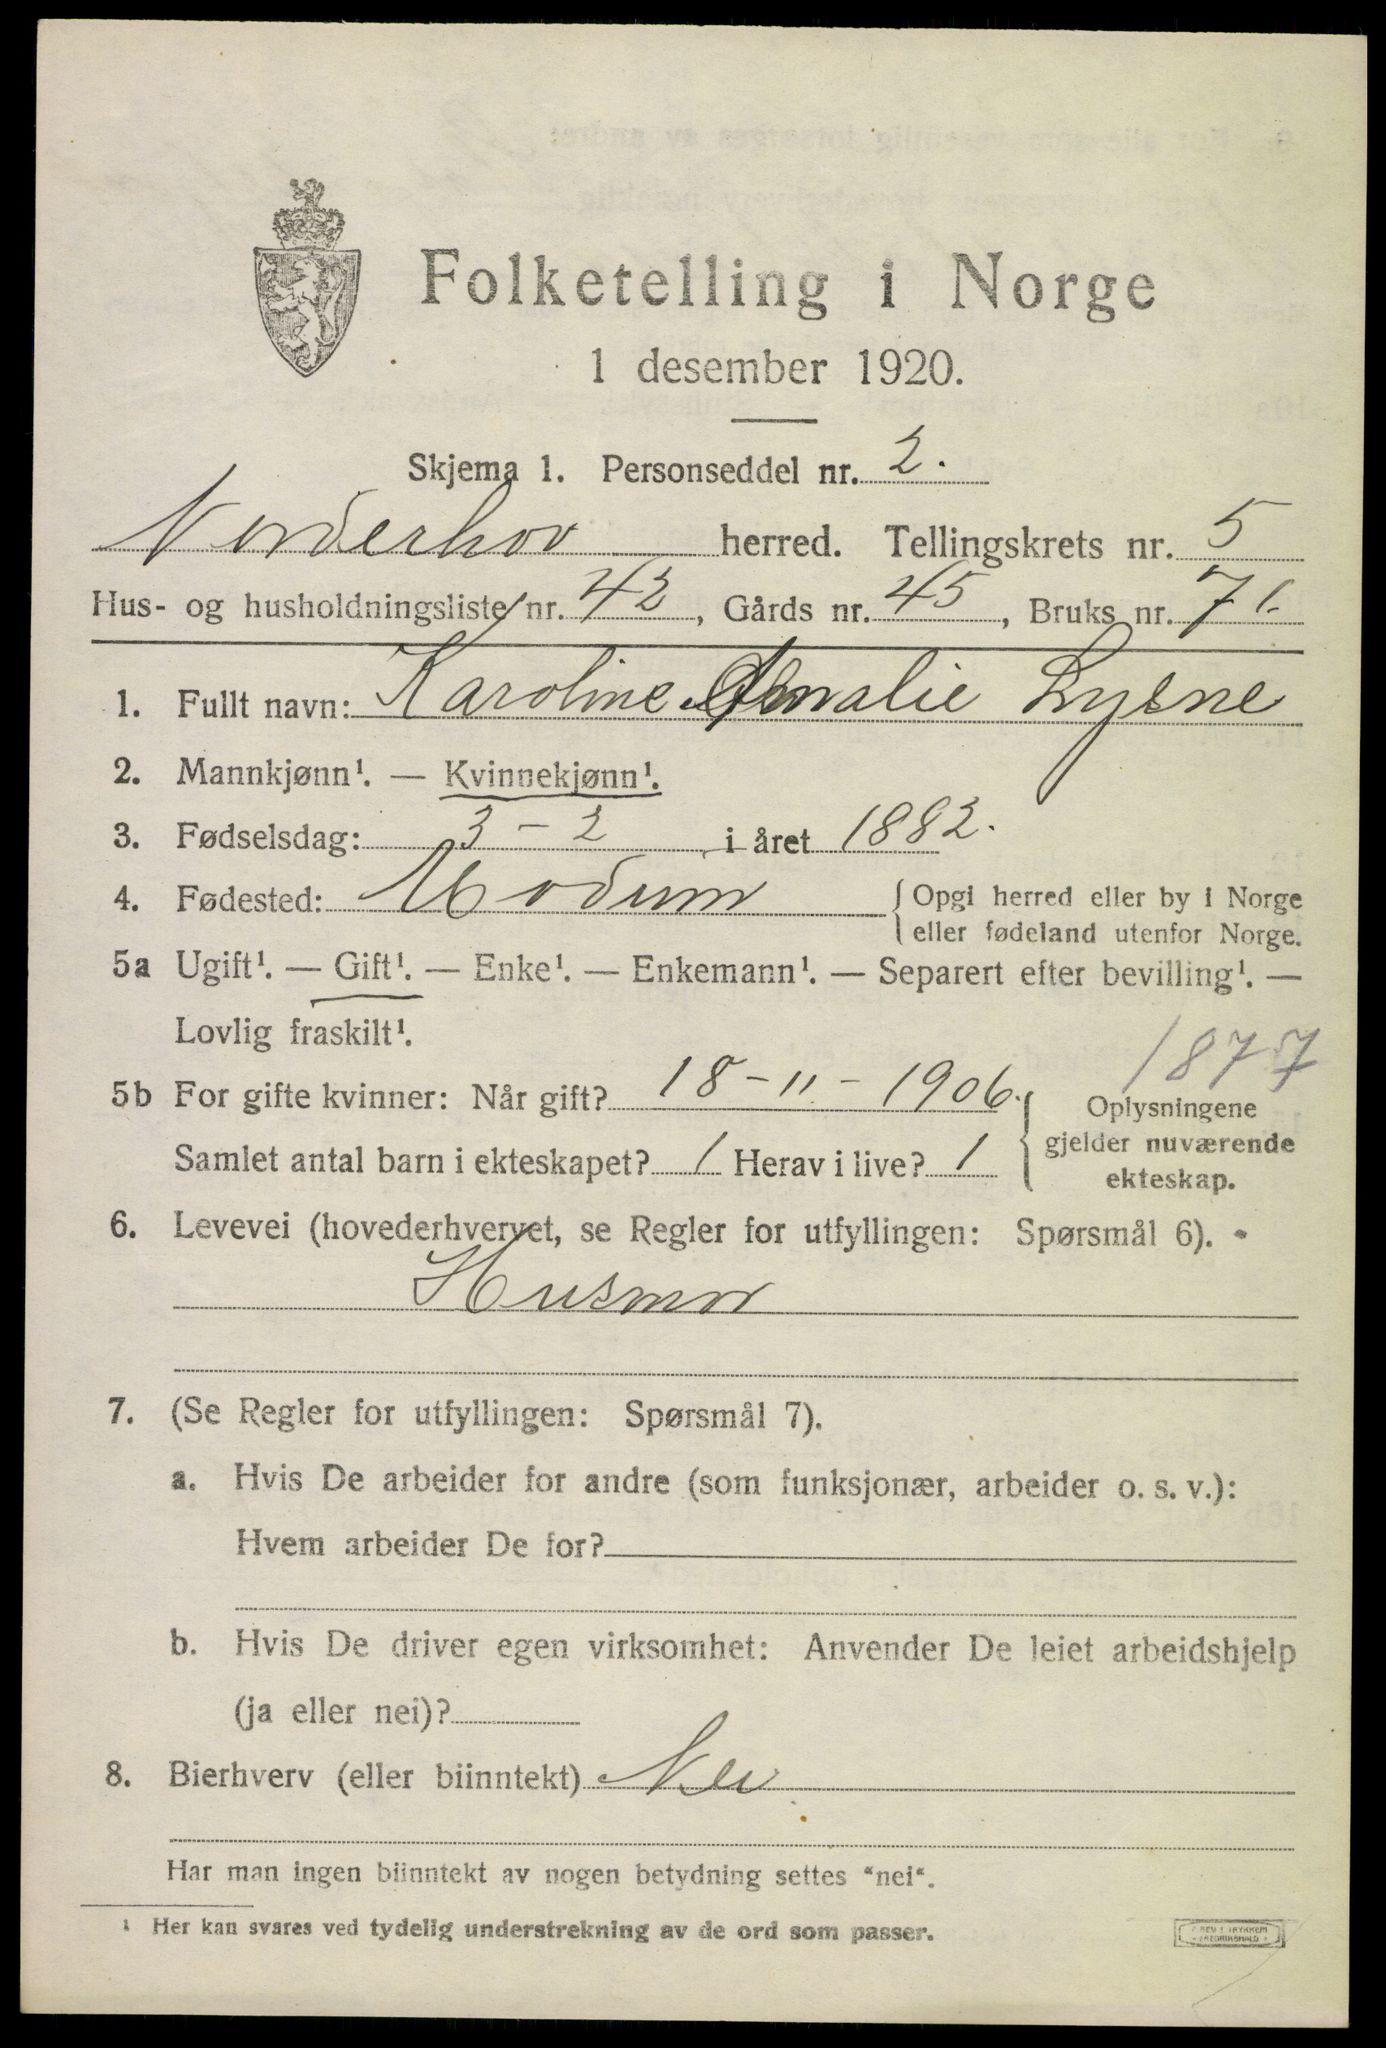 Folketelling i Norge
1 desember 1920.
Skjema 1. Personseddel nr. 2.
Norderhov herred. Tellingskrets nr. 5
Hus- og husholdningsliste nr. 42, Gårds nr. 45, Bruks nr. 71.
1. Fullt navn: Karoline Amalie Lysne
2. Mannkjønn¹. — Kvinnekjønn¹.
3. Fødselsdag: 3 - 2 i året 1882.
4. Fødested: Modum { Opgi herred eller by i Norge
eller fødeland utenfor Norge.
5a Ugift¹. — Gift¹. — Enke¹. — Enkemann¹. — Separert efter bevilling¹. —
Lovlig fraskilt¹.
1877
5b For gifte kvinner: Når gift? 18 - 11 - 1906. { Oplysningene
gjelder nuværende
ekteskap.
Samlet antal barn i ekteskapet? 1 Herav i live? 1
6. Levevei (hovederhvervet, se Regler for utfyllingen: Spørsmål 6).
Husmor
7. (Se Regler for utfyllingen: Spørsmål 7).
a. Hvis De arbeider for andre (som funksjonær, arbeider o. s. v.):
Hvem arbeider De for?
b. Hvis De driver egen virksomhet: Anvender De leiet arbeidshjelp
(ja eller nei)?
8. Bierhverv (eller biinntekt) Nei
Har man ingen biinntekt av nogen betydning settes "nei".
¹ Her kan svares ved tydelig understrekning av de ord som passer.